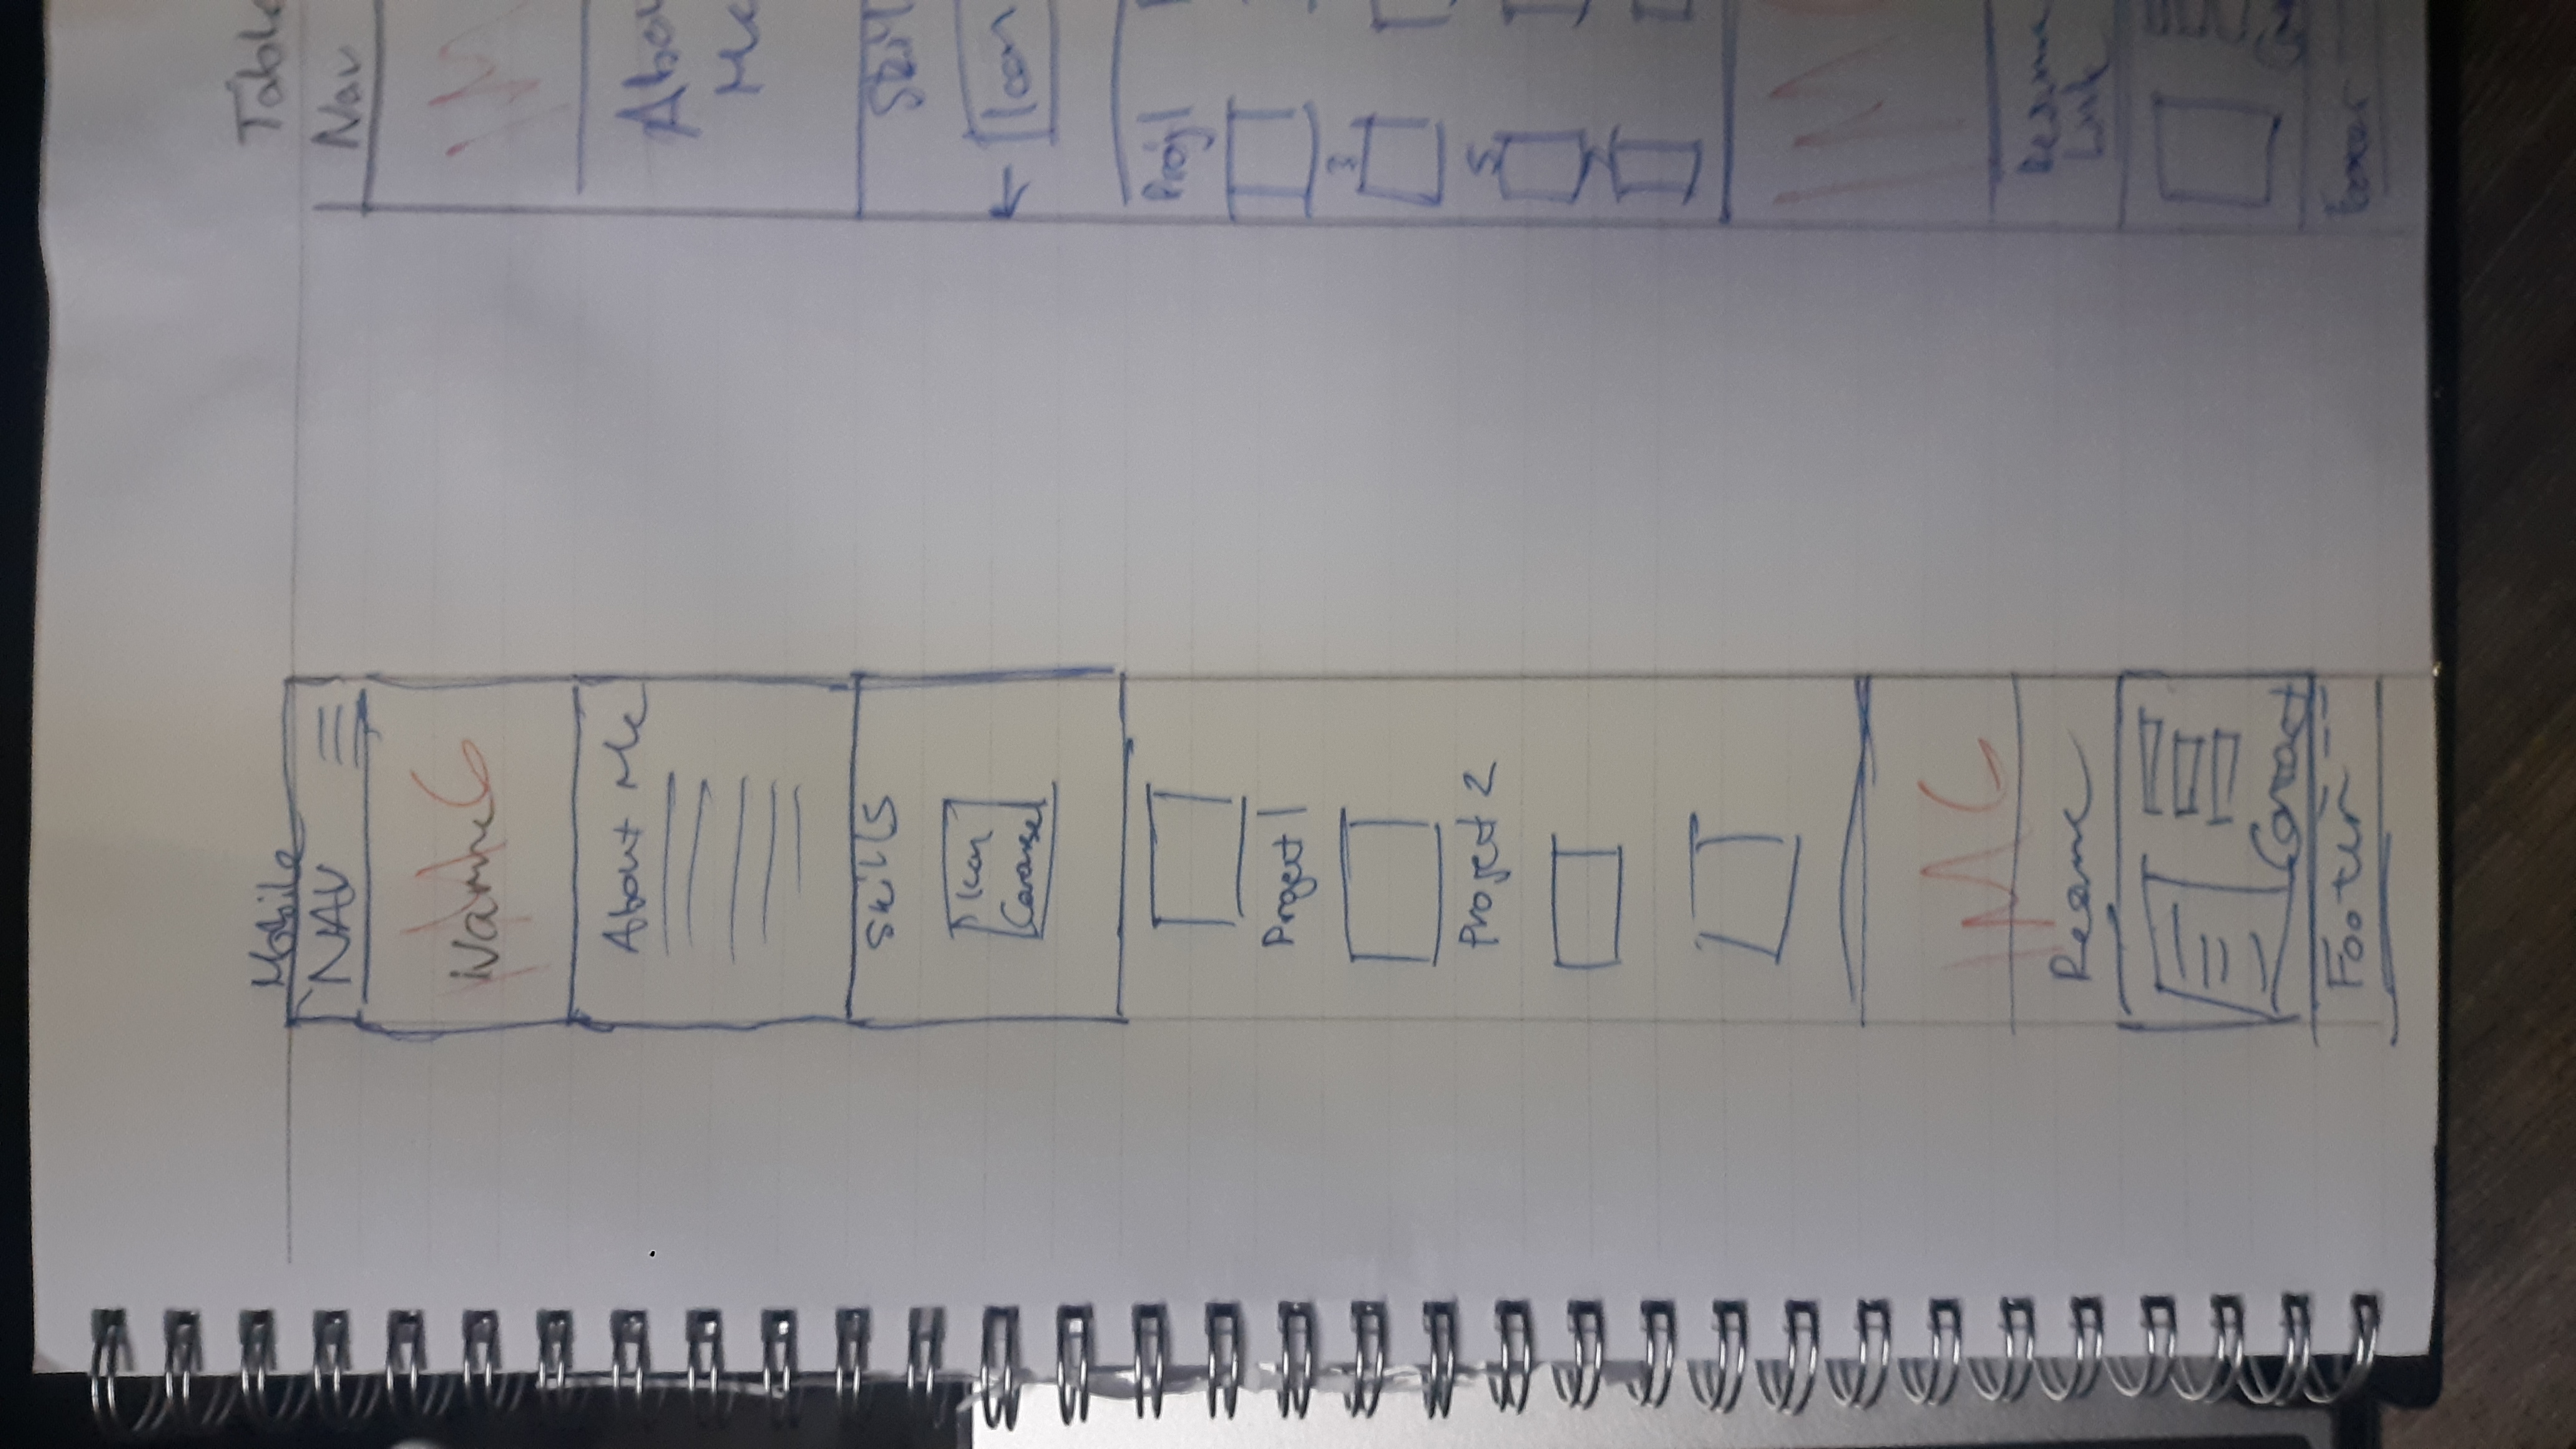 Mobile
NAV
Name
IMG
About Me
Skills
Icon
Carousel
Project 1
Project 2
IMG
Resume
Contact
Footer
Table
Nav
IM
Abou
Me
Skill
Icon
Proj 1
3
5
7
IM
Resume
Link
Footer